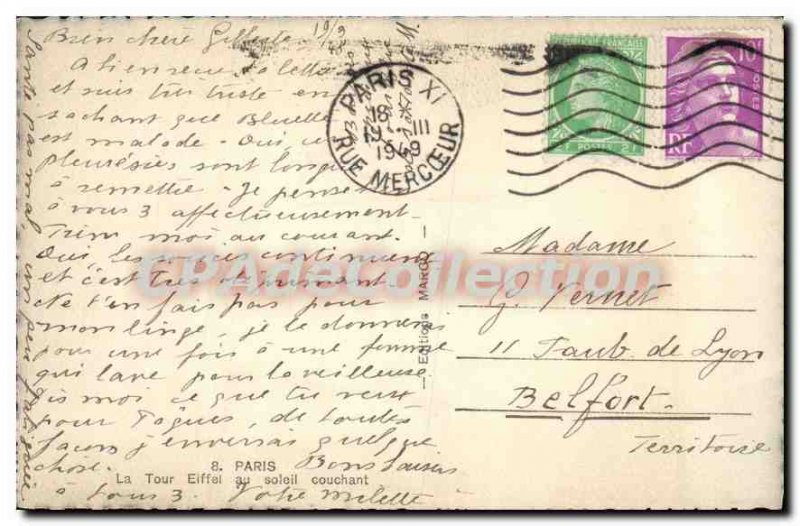 Bien chère Gilberte 19/3
A bien reçu ta lettre
et suis très triste en
sachant que
est malade. Oui, ces
pleurésies sont longues
à remettre. Je pense
à vous 3 affectueusement.
Tiens moi au courant.
Oui les soucis continuent
et c'est très déprimant.
Ne t'en fais pas pour
mon linge, je le donnerai
pour une fois à une femme
qui lave pour la veilleuse
Dis moi ce que tu veux
pour Pâques, de toutes
façons j'enverrai quelque
chose. Bons baisers
à tous 3. Votre
Santé pas mal, un peu fatiguée
8. PARIS
La Tour Eiffel au soleil couchant
— Editions MARCO —
PARIS XI
19 H
19 - III
1949
RUE MERCŒUR
REPUBLIQUE FRANÇAISE
2F POSTES 2F
10F
POSTES
RF
Madame
G. Vernet
11 Faub. de Lyon
Belfort.
Territoire
CPAdeCollection